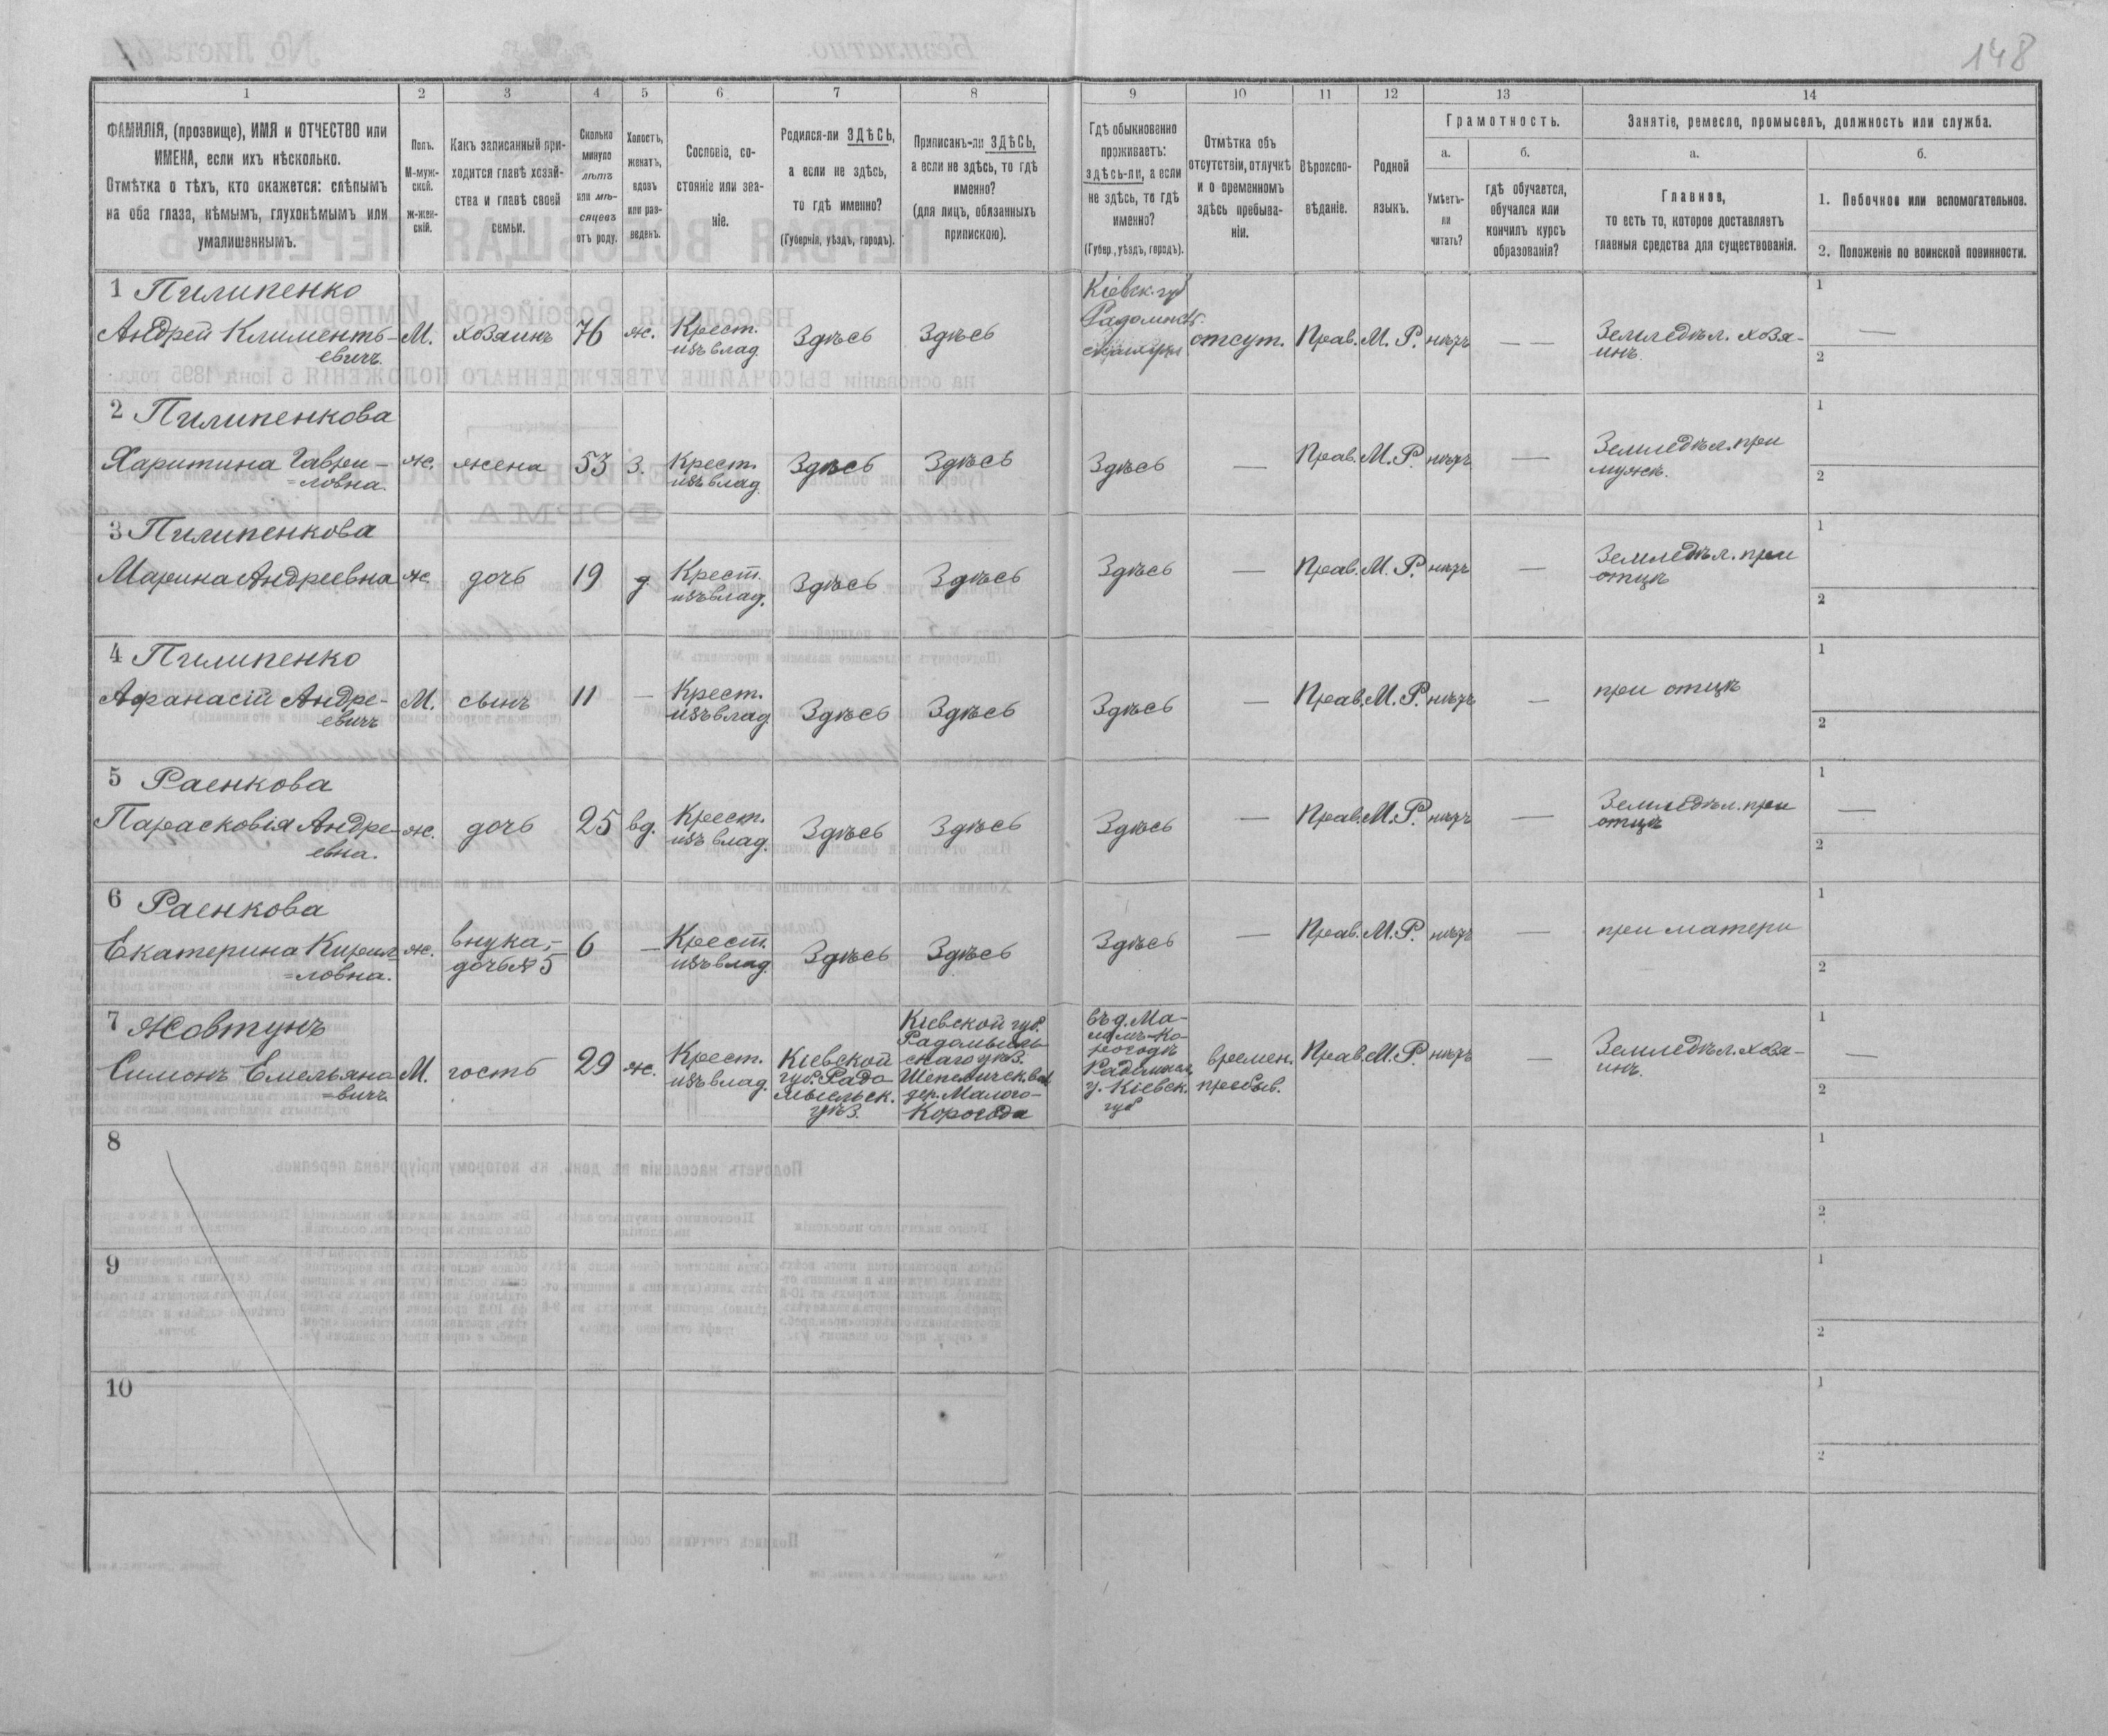 148
1 2 3 4 5 6 7 8 9 10 11 12 13 14
ФАМИЛІЯ, (прозвище), ИМЯ и ОТЧЕСТВО или
ИМЕНА, если ихъ нѣсколько.
Отмѣтка о тѣхъ, кто окажется: слѣпымъ
на оба глаза, нѣмымъ, глухонѣмымъ или
умалишеннымъ.
Полъ.
М-муж-
ской.
ж-жен-
скій.
Какъ записанный при-
ходится главѣ хозяй-
ства и главѣ своей
семьи.
Сколько
минуло
лѣтъ
или мѣ-
сяцевъ
отъ роду.
Холостъ,
женатъ,
вдовъ
или раз-
веденъ.
Сословіе, со-
стояніе или зва-
ніе.
Родился-ли ЗДѢСЬ,
а если не здѣсь,
то гдѣ именно?
(Губернія, уѣздъ, городъ).
Приписанъ-ли ЗДѢСЬ,
а если не здѣсь, то гдѣ
именно?
(для лицъ, обязанныхъ
припискою).
Гдѣ обыкновенно
проживаетъ:
здѣсь-ли, а если
не здѣсь, то гдѣ
именно?
(Губер., уѣздъ, городъ).
Отмѣтка объ
отсутствіи, отлучкѣ
и о временномъ
здѣсь пребыва-
ніи.
Вѣроиспо-
вѣданіе.
Родной
языкъ.
Грамотность.
а.
Умѣетъ-
ли
читать?
б.
гдѣ обучается,
обучался или
кончилъ курсъ
образованія?
Занятіе, ремесло, промыселъ, должность или служба.
а.
Главное,
то есть то, которое доставляетъ
главныя средства для существованія.
б.
1. Побочное или вспомогательное.
2. Положеніе по воинской повинности.
1 Пилипенко
Андрей Климентъ-
евичъ
М.
хозяинъ
76
ж.
Крест.
изъ влад.
Здѣсь
Здѣсь
Кіевск. губ
отсут.
Прав.
М. Р.
нѣтъ
— —
Земледѣл. хозя-
инъ.
1 —
2
2 Пилипенкова
Харитина Гаври-
=ловна.
ж.
жена
53
З.
Крест.
изъ влад.
Здѣсь
Здѣсь
Здѣсь
—
Прав.
М. Р.
нѣтъ
—
Земледѣл. при
мужѣ.
1
2
3 Пилипенкова
Марина Андреевна
ж.
дочь
19
д.
Крест.
изъ влад.
Здѣсь
Здѣсь
Здѣсь
—
Прав.
М. Р.
нѣтъ
—
Земледѣл. при
отцѣ
1
2
4 Пилипенко
Афанасій Андре-
евичъ
М.
сынъ
11
—
Крест.
изъ влад
Здѣсь
Здѣсь
Здѣсь
—
Прав.
М. Р.
нѣтъ
—
при отцѣ
1
2
5 Раенкова
Парасковія Андре-
евна.
ж.
дочь
25
вд.
Крест.
изъ влад.
Здѣсь
Здѣсь
Здѣсь
—
Прав.
М. Р.
нѣтъ
—
Земледѣл. при
отцѣ
1 —
2
6 Раенкова
Екатерина Кирил
=ловна.
ж.
внука,-
дочь № 5
6
—
Крест.
изъ влад.
Здѣсь
Здѣсь
Здѣсь
—
Прав.
М. Р.
нѣтъ
—
при матери
1
2
7 Жовтунъ
Симонъ Емельяно
=вичъ
М.
гость
29
ж.
Крест.
изъ влад.
Кіевской
губ. Радо-
мысльск.
уѣз.
Кіевской губ.
Радомысль-
скаго уѣз.
Шепеличск. вол
дер. Малого-
Корогода
въ д. Ма-
ломъ-Ко-
рогодѣ
у. Кіевск.
губ
времен.
пребыв.
Прав.
М. Р.
нѣтъ
—
Земледѣл. хозя-
инъ.
1 —
2
8
1
2
9
1
2
10
1
2